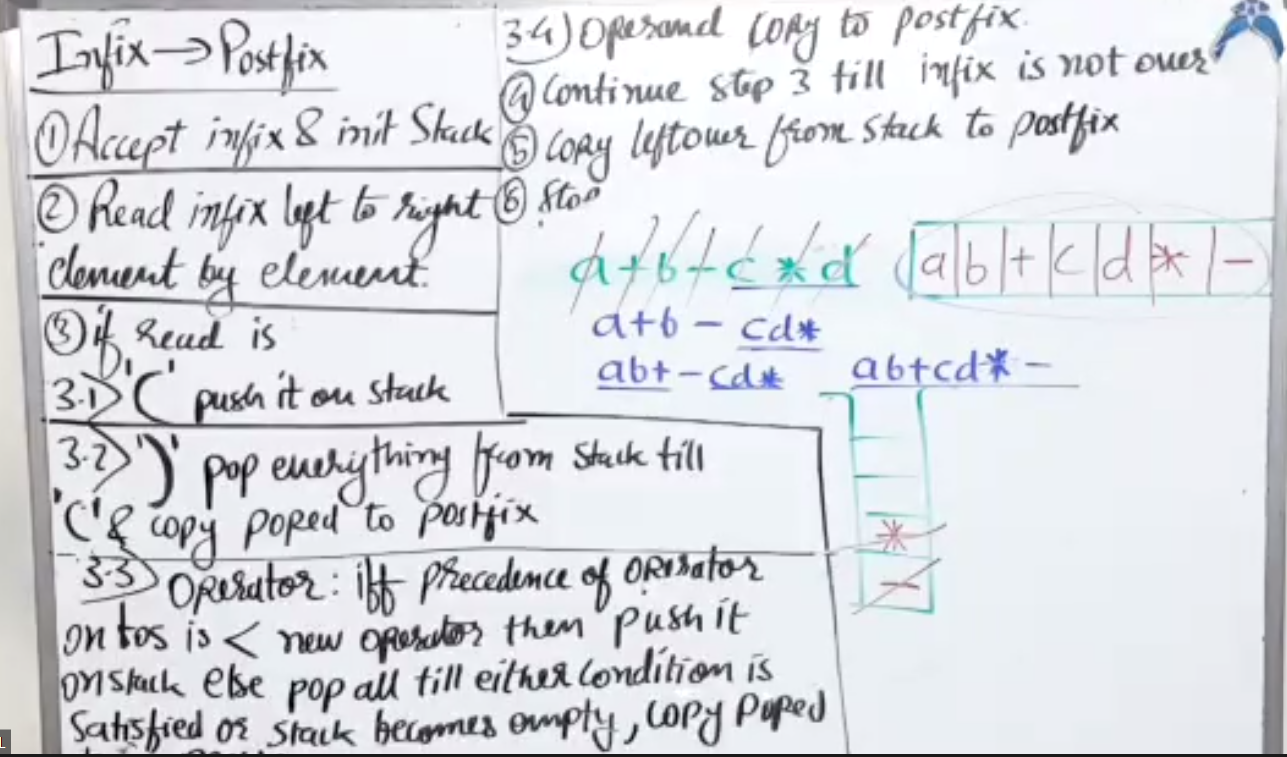 Infix → Postfix
① Accept infix & init Stack
② Read infix left to right
element by element.
③ if Read is
3.1) '(' push it on stack
3.2) ')' pop everything from stack till
'(' & copy poped to postfix
3.3) Operator: iff precedence of operator
on tos is < new operator then push it
on stack else pop all till either condition is
satisfied or stack becomes empty, copy poped
3.4) Operand copy to postfix.
④ Continue step 3 till infix is not over
⑤ copy leftover from stack to postfix
⑥ Stop
a + b - c * d
a | b | + | c | d | * | -
a+b - cd*
ab+ - cd*
ab+cd* -
*
-
1